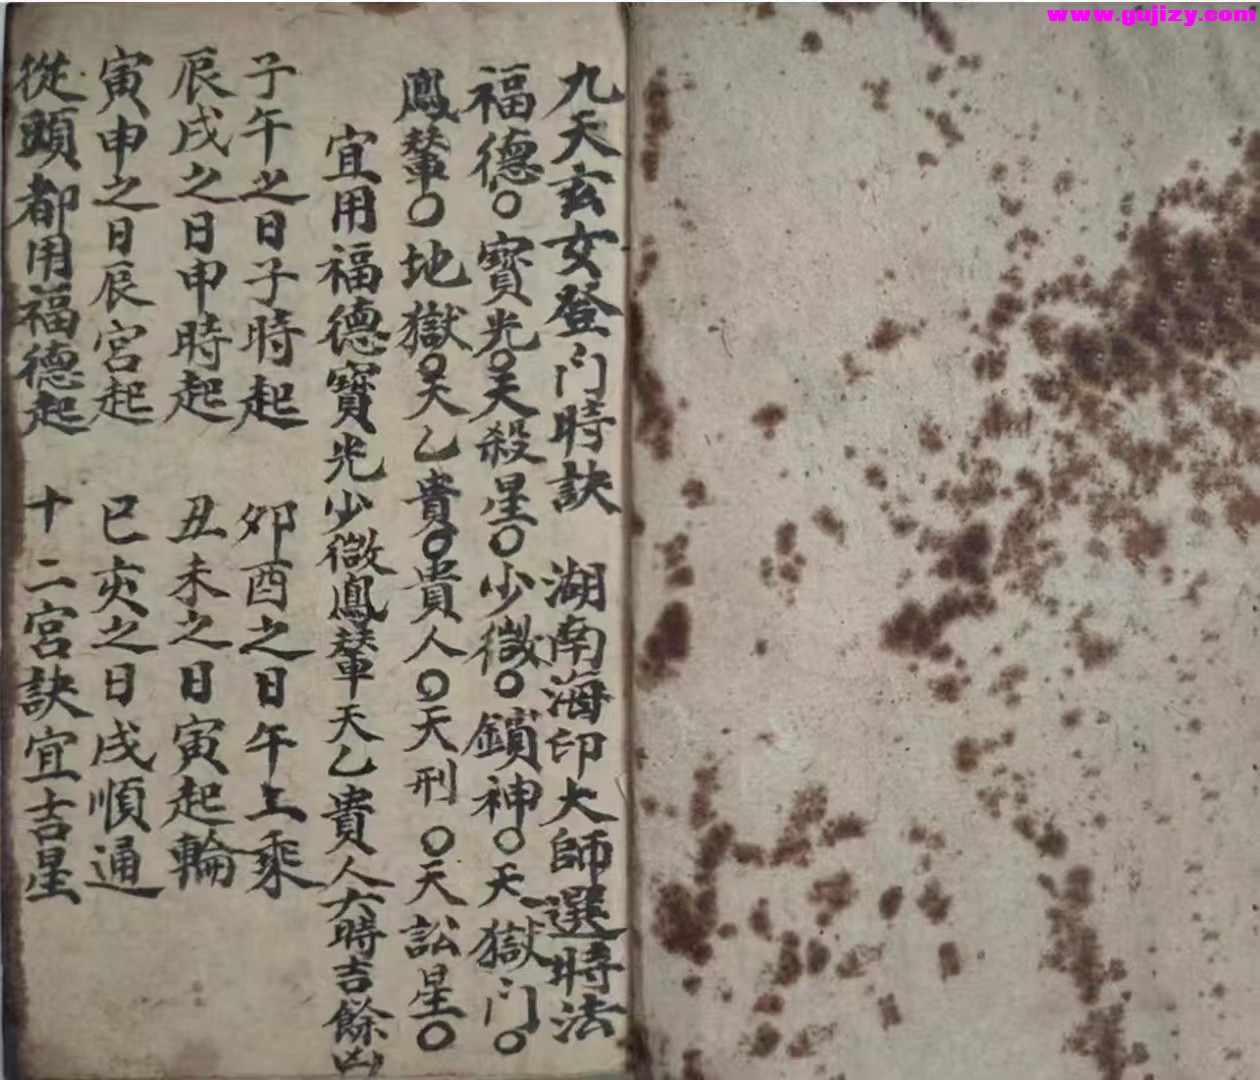 九天玄女登门時訣　湖南海印大師選時法
福德〇寶光〇天殺星〇少微〇鎖神〇天獄门〇
鳳輦〇地獄〇天乙貴〇貴人〇天刑〇天訟星〇
宜用福德寶光少微鳳輦天乙貴人六時吉餘凶
子午之日子時起　卯酉之日午上乘
辰戌之日申時起　丑未之日寅起輪
寅申之日辰宮起　巳亥之日戌順通
從頭都用福德起　十二宮訣宜吉星
www.gujizy.com